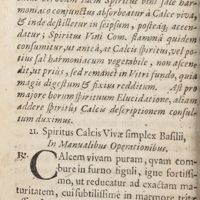 monio, eo conjunctus absorbeatur à Calce viva,
& inde destilletur in seipsum, postea, accen-
datur, Spiritus Vini Com. flammâ quidem
consumitur, ut anteà, at Calcis spiritus, vel po-
tius sal harmoniacum vegetabile, non ascen-
dit, ut priùs, sed remanet in Vitri fundo, quia
magis digestum & fixius redditum. AS pro
majore horum spirituum Elucidatione, aliam
addere spiritûs Calcis descriptionem consul-
tum duximus.
21. Spiritus Calcis Vivæ simplex Basilii,
In Manualibus Operationibus.
℞. CAlcem vivam puram, quam com-
bure in furno figuli, igne fortissi-
mo, ut reducatur ad exactam ma-
turitatem, cui subtilissimè in marmore tritæ